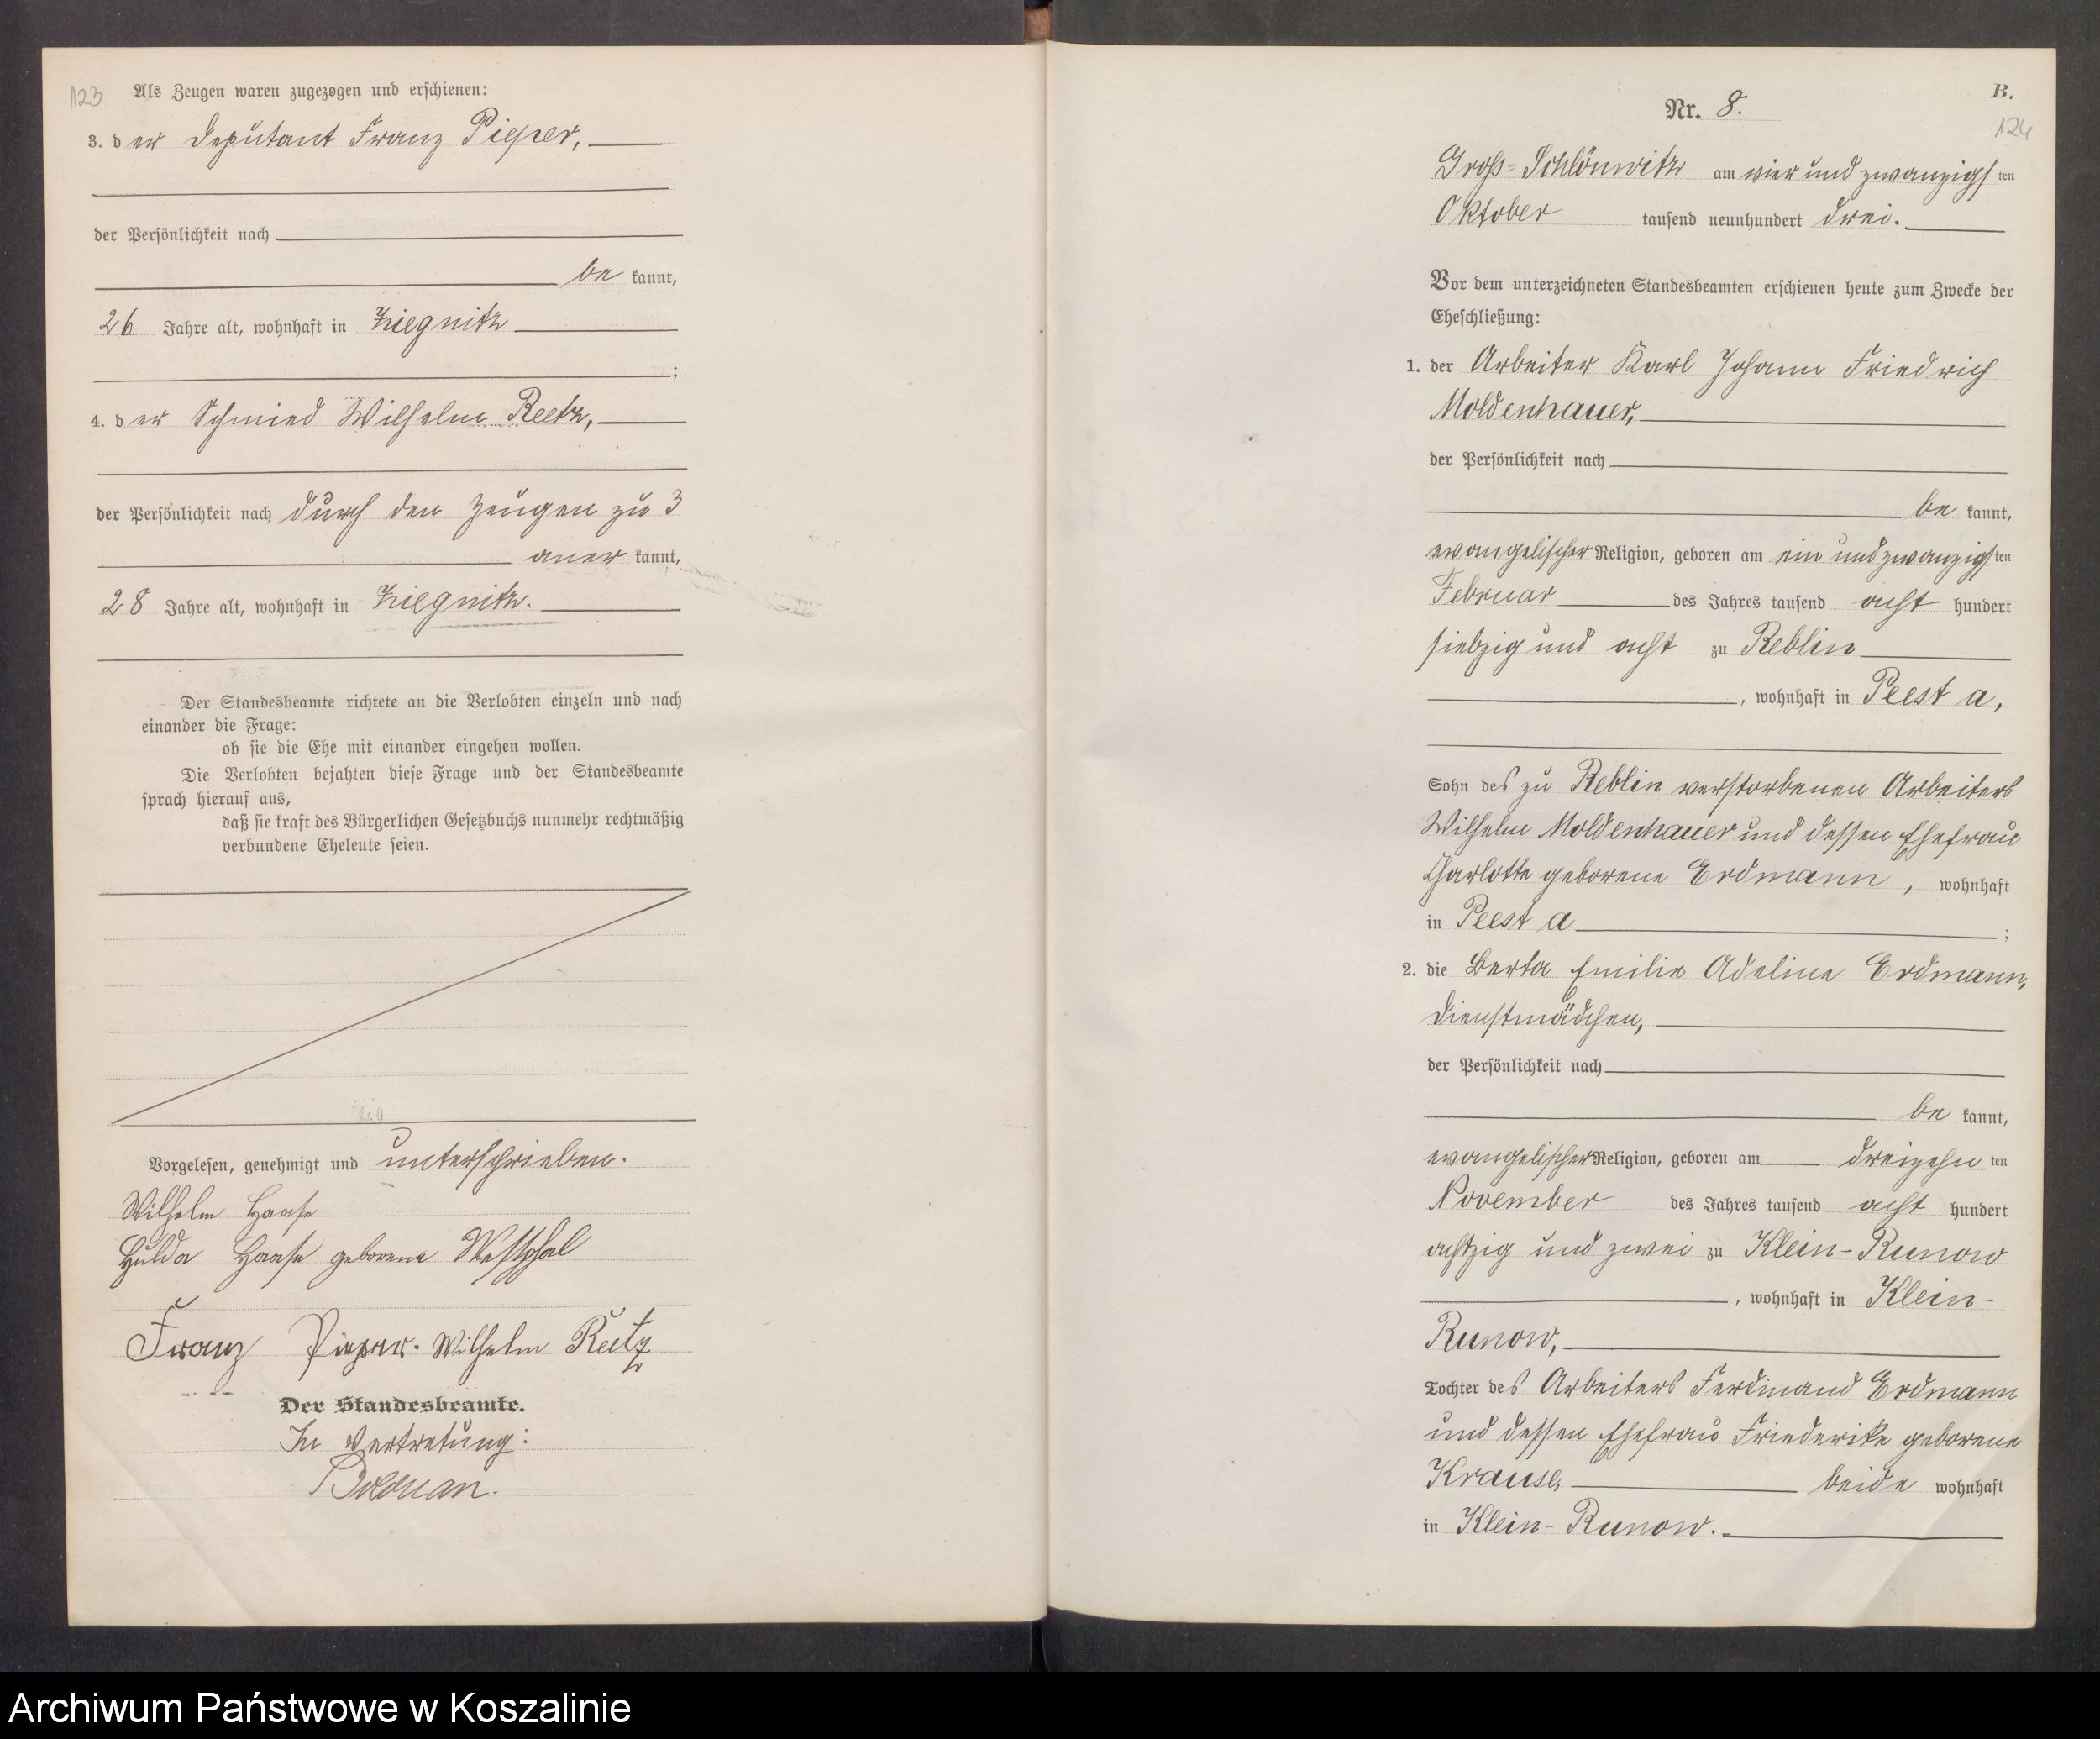 123
Als Zeugen waren zugezogen und erschienen:
3. der Deputant Franz Pieper,
der Persönlichkeit nach
be kannt,
26 Jahre alt, wohnhaft in Ziegnitz
;
4. der Schmied Wilhelm Reetz,
der Persönlichkeit nach durch den Zeugen zu 3
aner kannt,
28 Jahre alt, wohnhaft in Ziegnitz.
Der Standesbeamte richtete an die Verlobten einzeln und nach
einander die Frage:
ob sie die Ehe mit einander eingehen wollen.
Die Verlobten bejahten diese Frage und der Standesbeamte
sprach hierauf aus,
daß sie kraft des Bürgerlichen Gesetzbuchs nunmehr rechtmäßig
verbundene Eheleute seien.
Vorgelesen, genehmigt und unterschrieben.
Wilhelm Haase
Hulda Haase geborene Westphal
Franz Pieper. Wilhelm Reetz
Der Standesbeamte.
In Vertretung:
B.
Nr. 8.
124
Groß-Schlönwitz am vier und zwanzigsten
Oktober tausend neunhundert drei.
Vor dem unterzeichneten Standesbeamten erschienen heute zum Zwecke der
Eheschließung:
1. der Arbeiter Karl Johann Friedrich
Moldenhauer,
der Persönlichkeit nach
be kannt,
evangelischer Religion, geboren am ein und zwanzigsten
Februar des Jahres tausend acht hundert
siebzig und acht zu Reblin
, wohnhaft in Peest a,
Sohn des zu Reblin verstorbenen Arbeiters
Wilhelm Moldenhauer und dessen Ehefrau
Charlotte geborene Erdmann, wohnhaft
in Peest a ;
2. die Berta Emilie Adeline Erdmann,
Dienstmädchen,
der Persönlichkeit nach
be kannt,
evangelischer Religion, geboren am dreizehn ten
November des Jahres tausend acht hundert
achtzig und zwei zu Klein-Runow
, wohnhaft in Klein-
Runow,
Tochter des Arbeiters Ferdinand Erdmann
und dessen Ehefrau Friederike geborene
Krause, beide wohnhaft
in Klein-Runow.
Archiwum Państwowe w Koszalinie